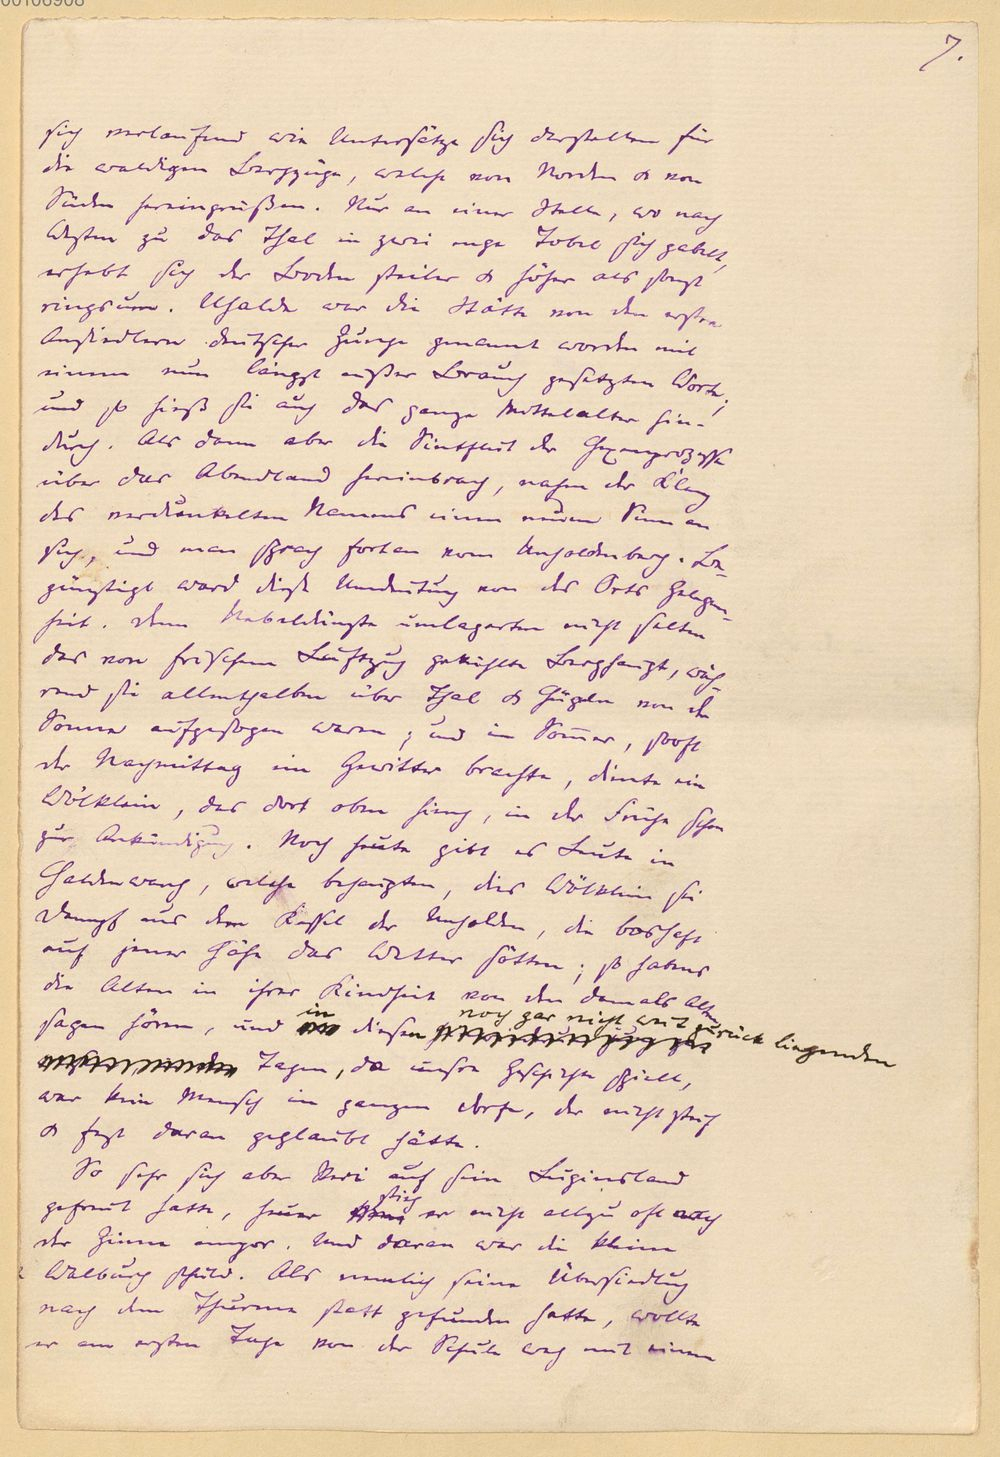 00106908
7.
sich verlaufend wie Untersätze sich darstellen für
die waldigen Bergzüge, welche von Norden & von
Süden hereingrüßen. Nur an einer Stelle, wo nach
Westen zu das Thal in zwei enge Tobel sich gabelt,
erhebt sich der Boden steiler & höher als sonst
ringsum. Uhalde war die Stätte von den ersten
Ansiedlern deutscher Zunge genannt worden mit
einem nun längst außer Brauch gesetzten Worte;
und so hieß sie auch das ganze Mittelalter hin-
durch. Als dann aber die Sintflut der Hexenprozesse
über das Abendland hereinbrach, nahm der Klang
des verdunkelten Namens einen neuen Sinn an
sich, und man sprach fortan vom Unholdenberg. Be-
günstigt ward diese Umdeutung von des Orts Gelegen-
heit. Denn Nebeldünste umlagerten nicht selten
das von frischem Luftzug gekühlte Berghaupt, wäh-
rend sie allenthalben über Thal & Hügeln von der
Sonne aufgesogen waren; und im Sommer, sooft
der Nachmittag ein Gewitter brachte, diente ein
Wölklein, das dort oben hieng, in der Frühe schon
zur Ankündigung. Noch heute gibt es Leute in
Haldenwang, welche behaupten, dies Wölklein sei
Dampf aus dem Kessel der Unholden, die boshaft
auf jener Höhe das Wetter sötten; so habens
die Alten in ihrer Kindheit von den damals Alten
sagen hören, und in diesen noch gar nicht weit zurück liegenden
Tagen, da unsre Geschichte spielt,
war kein Mensch im ganzen Dorfe, der nicht steif
& fest daran geglaubt hätte.
So sehr sich aber Veri auf sein Luginsland
gefreut hatte, heuer stieg er nicht allzu oft nach
der Zinne empor. Und daran war die kleine
Walburg schuld. Als nemlich seine Übersiedlung
nach dem Thurme statt gefunden hatte, wollte
er am ersten Tage von der Schule weg mit einem